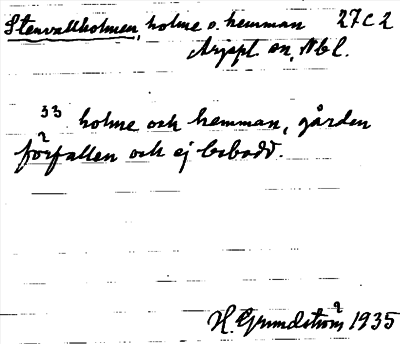 Stenvallholmen, holme o. hemman 27C2
Arjepl. sn, Nbl.
33 holme och hemman, gården
förfallen och ej bebodd.
H. Grundström 1935